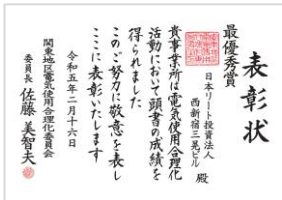 表彰状
最優秀賞
日本リート投資法人
西新宿三晃ビル 殿
貴事業所は電気使用合理化
活動において頭書の成績を
得られました
このご努力に敬意を表し
ここに表彰いたします
令和五年二月十六日
関東地区電気使用合理化委員会
委員長 佐藤美智夫